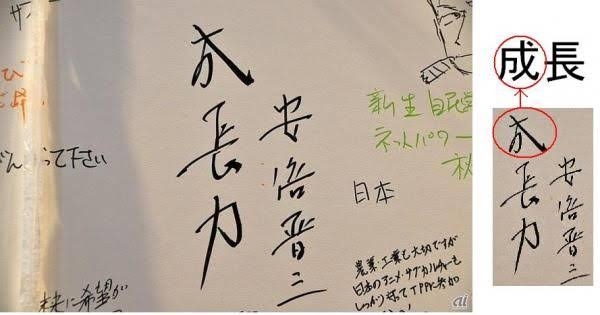 成長力
安倍晋三
新生自民党
ネットパワー
日本
って下さい
農業、工業も大切ですが
日本のアニメ・サブカルチャーも
しっかり守ってTPPに参加
未来に希望が
ai
成長
成長力
安倍晋三